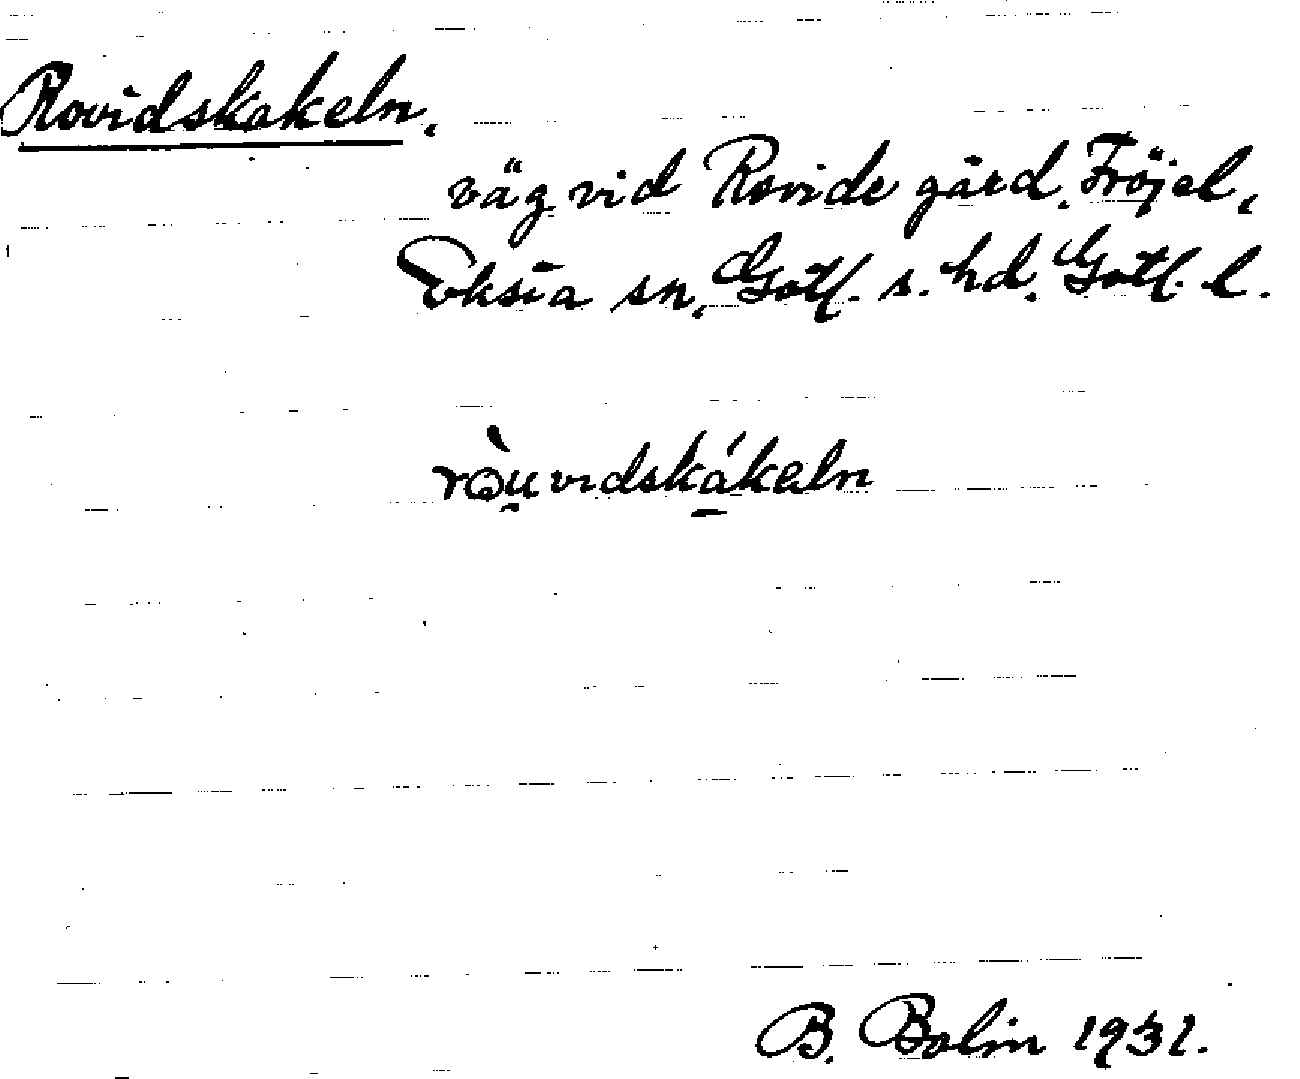 Rovidskakeln.
väg vid Rovide gård, Fröjel,
Eksta sn, Gotl. s. hd. Gotl. l.
ròu̯vidskákeln
B. Bolin 1931.